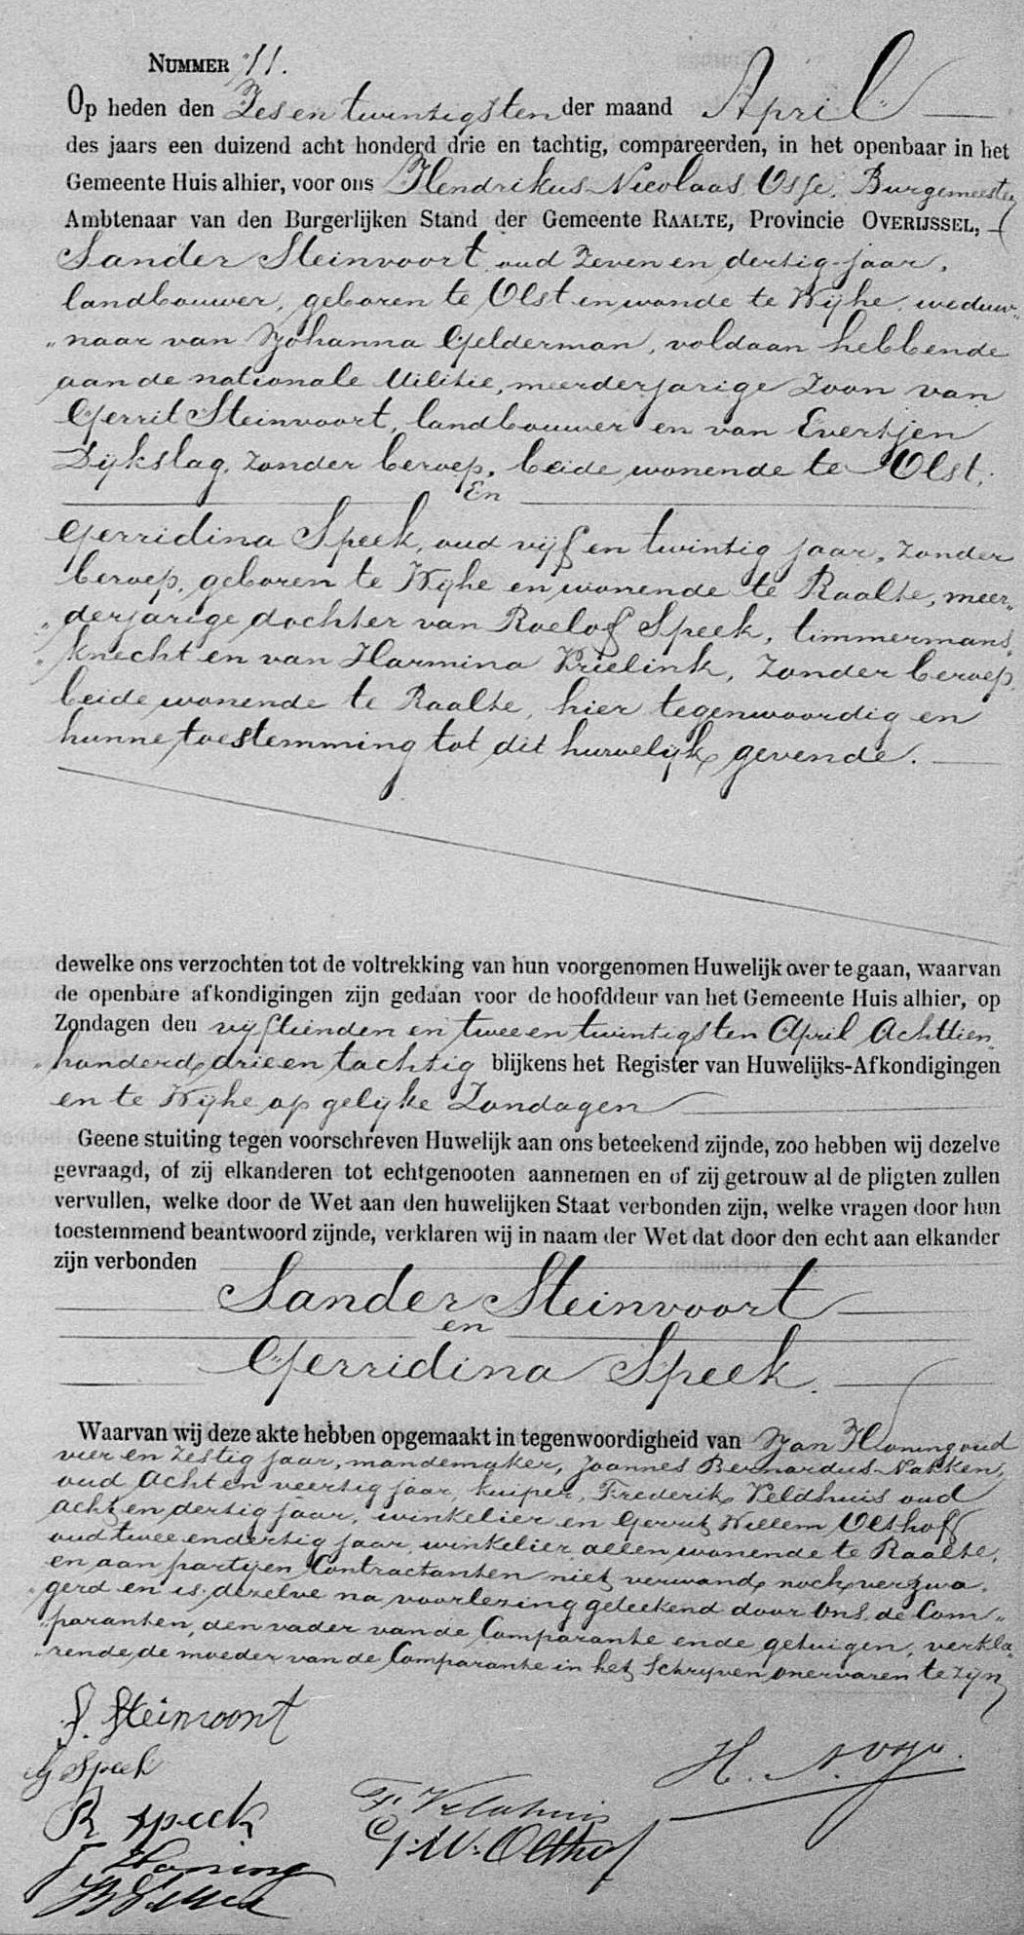 NUMMER 11.
Op heden den Zes en twintigsten der maand April
des jaars een duizend acht honderd drie en tachtig, compareerden, in het openbaar in het
Gemeente Huis alhier, voor ons Hendrikus Nicolaas Osse, Burgemeester
Ambtenaar van den Burgerlijken Stand der Gemeente RAALTE, Provincie OVERIJSSEL,
Sander Steinvoort oud Zeven en dertig jaar,
landbouwer, geboren te Olst en wonde te Wijhe, weduw-
"naar van Johanna Gelderman, voldaan hebbende
aan de nationale Militie, meerderjarige Zoon van
Gerrit Steinvoort, landbouwer en van Evertjen
Dijkslag, zonder beroep, beide wonende te Olst,
En
Gerridina Speek, oud vijf en twintig jaar, zonder
beroep, geboren te Wijhe en wonende te Raalte, meer-
"derjarige dochter van Roelof Speek, timmermans-
"knecht en van Harmina Krielink, zonder beroep
beide wonende te Raalte, hier tegenwoordig en
hunne toestemming tot dit huwelijk gevende.
dewelke ons verzochten tot de voltrekking van hun voorgenomen Huwelijk over te gaan, waarvan
de openbare afkondigingen zijn gedaan voor de hoofddeur van het Gemeente Huis alhier, op
Zondagen den vijftienden en twee en twintigsten April Achttien-
"honderd drie en tachtig blijkens het Register van Huwelijks-Afkondigingen
en te Wijhe op gelijke Zondagen
Geene stuiting tegen voorschreven Huwelijk aan ons beteekend zijnde, zoo hebben wij dezelve
gevraagd, of zij elkanderen tot echtgenooten aannemen en of zij getrouw al de pligten zullen
vervullen, welke door de Wet aan den huwelijken Staat verbonden zijn, welke vragen door hun
toestemmend beantwoord zijnde, verklaren wij in naam der Wet dat door den echt aan elkander
zijn verbonden
Sander Steinvoort
en
Gerridina Speek.
Waarvan wij deze akte hebben opgemaakt in tegenwoordigheid van Jan Honing oud
vier en Zestig jaar, mandemaker, Joannes Bernardus Nakken,
oud Acht en veertig jaar, kuiper, Frederik Veldhuis oud
acht en dertig jaar, winkelier en Gerrit Willem Olthoff
oud twee en dertig jaar winkelier allen wonende te Raalte,
en aan partijen Contractanten niet verwand noch verzwa-
"gerd en is dezelve na voorlezing geteekend door Ons, de Com-
"paranten, den vader van de Comparante en de getuigen, verkla-
"rende de moeder van de Comparante in het Schrijven onervaren te zijn
S. Steinvoort
G Speek
R speek
H. N. Osse.
F. Veldhuis
G. W. Olthof
J Honing